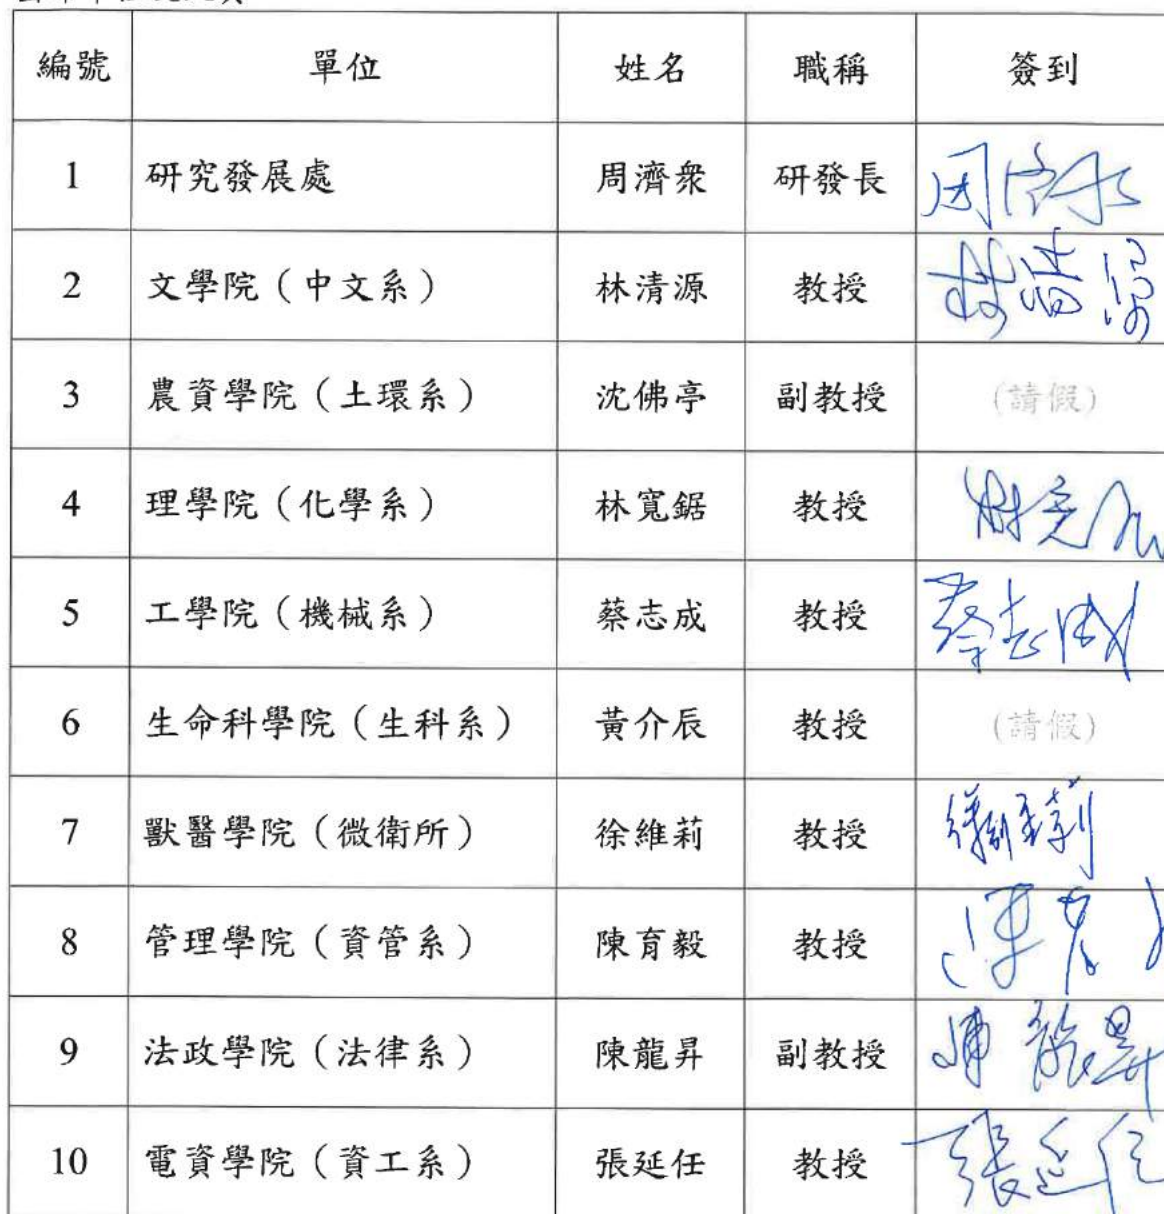 編號 單位 姓名 職稱 簽到
1 研究發展處 周濟眾 研發長 周濟眾
2 文學院（中文系） 林清源 教授 林清源
3 農資學院（土環系） 沈佛亭 副教授 (請假)
4 理學院（化學系） 林寬鋸 教授 林寬
5 工學院（機械系） 蔡志成 教授 蔡志成
6 生命科學院（生科系） 黃介辰 教授 (請假)
7 獸醫學院（微衛所） 徐維莉 教授 徐維莉
8 管理學院（資管系） 陳育毅 教授 陳育
9 法政學院（法律系） 陳龍昇 副教授 陳龍昇
10 電資學院（資工系） 張延任 教授 張延任